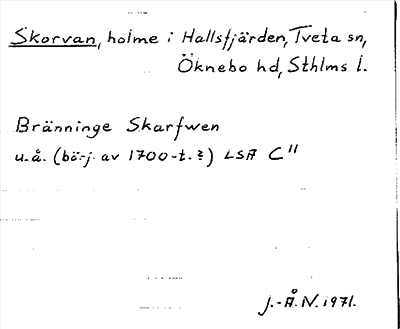 Skorvan, holme i Hallsfjärden, Tveta sn,
Öknebo hd, Sthlms l.
Bränninge Skarfwen
u.å. (börj. av 1700-t.?) LSA C"
J.-Å. N. 1971.